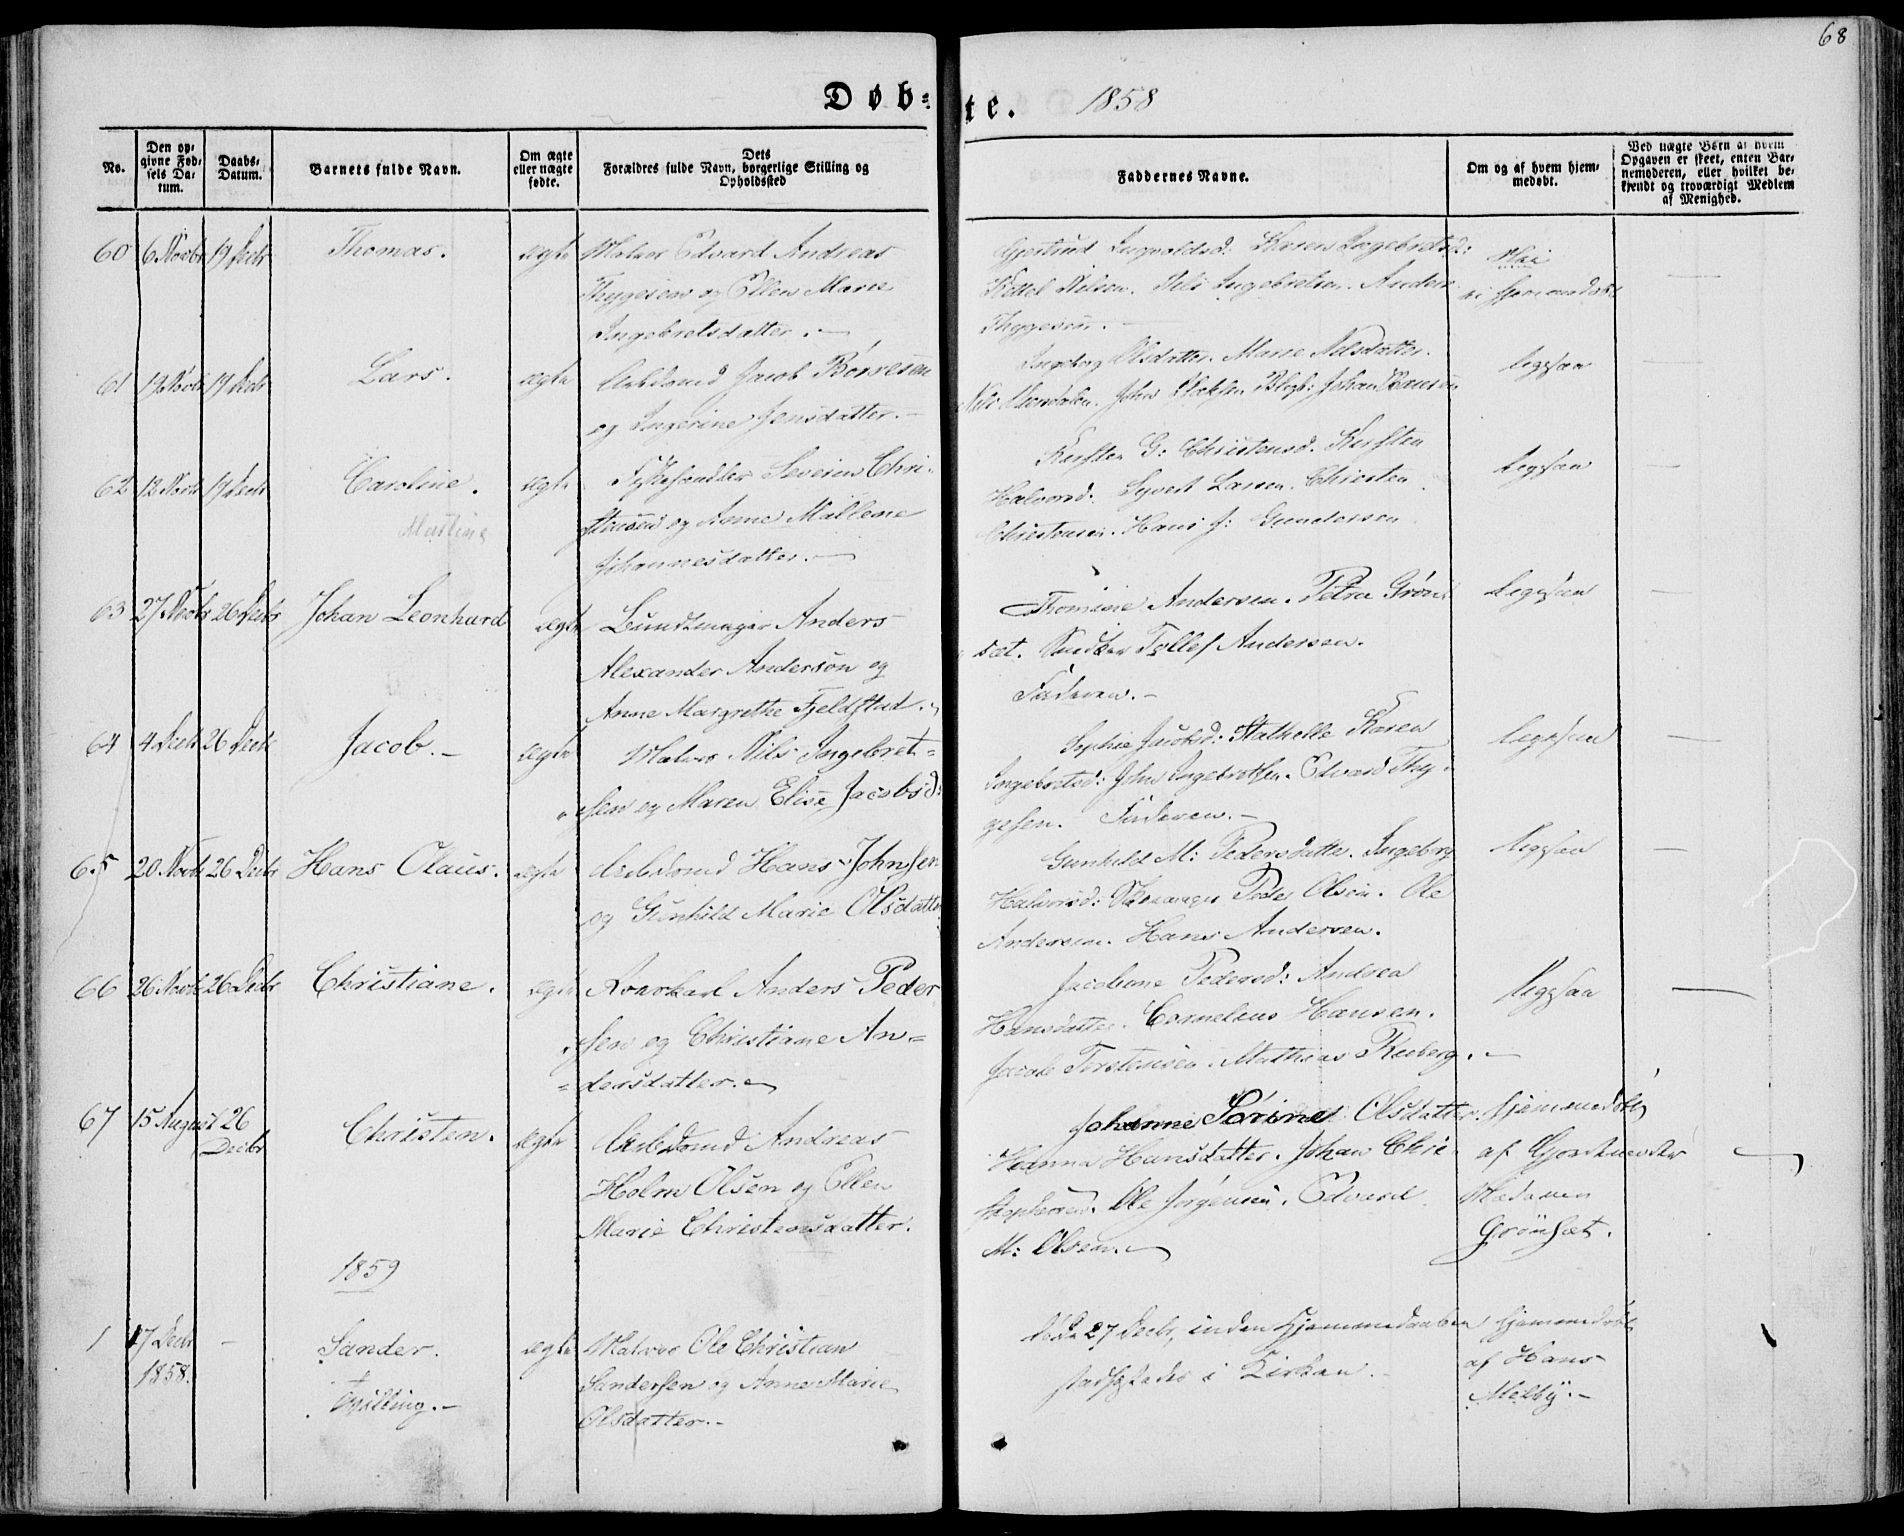 68
Døb=te. 1858
No.
Den opgivne Fødsels Datum.
Daabs-Datum.
Barnets fulde Navn.
Om ægte eller uægte fødte.
Dets Forældres fulde Navn, borgerlige Stilling og Opholdssted
Faddernes Navne.
Om og af hvem hjemmedøbt.
Ved uægte Børn af hvem Opgaven er skeet, enten Barnemoderen, eller hvilket bekjendt og troværdigt Medlem af Menighed.
60 6 Novbr 19 Decbr Thomas. ægte Matros Edvard Andreas
Thygesen og Ellen Marie
Ingebretsdatter.
Gjertrud Karen Ingebretsd:
Kettel Nilsen. Nils Ingebretsen. Anders
Thygesen.
Nei
ei hjemmedøbt
61 19 Decbr Lars. ægte Arbdsmd Jacob Børresen
og Ingerine Jensdatter.
Ingeborg Olsdatter. Maree Nilsdatter.
Johan Hansen
ligesaa
62 12 Novbr 19 Decbr Caroline. ægte Severin Chri-
stensen og Anne Mallene
Johannesdatter.
Kirsten G: Christensd. Kirsten
Halvorsd. Syvert Larsen. Christen
Christensen. Hans J: Gundersen
ligesaa
63 27 Novbr 26 Decbr Johan Leonhard ægte Bundtmager Anders
Alexander Anderson og
Anne Margrethe Fjeldstad.
Thomine Andersen. Petra Grøn-
sæt. Tollef Andersen.
Faderen.
ligesaa
64 4 Decbr 26 Decbr Jacob. ægte Matros Nils Ingebret-
sen og Maren Elise Jacobsd:
Sophie Jacobsd: Stathelle Karen
Ingebretsd: John Ingebretsen. Edvard Thy-
gesen. Faderen.
ligesaa
65 20 Novbr 26 Decbr Hans Olaus. ægte Arbdsmd Hans Johnsen
og Gunhild Marie Olsdatter
Gunhild M: Pedersdatter. Ingeborg
Halvorsd: Peder Olsen. Ole
Andersen. Hans Andersen.
ligesaa
66 26 Novbr 26 Decbr Christiane. ægte Anders Peder
sen og Christiane An=
=dersdatter.
Jacobine Pedersd: Andrea
Hansdatter. Cornelius Hansen.
Jacob Torstensen. Mathias
ligesaa
67 15 August 26
Decbr
Christen. ægte Arbdsmd Andreas
Holm Olsen og Ellen
Marie Christensdatter.
Johanne Sørine Olsdatter.
Hanna Hansdatter. Johan Chri-
stophersen. Ole Jørgensen. Edvard
M: Olsen.
hjemmedøbt
af Gjordemoder
Madamen
Grønsæt.
1859
1 17 Decbr
1858.
Sander.
†
Tvilling.
ægte Matros Ole Christian
Sandersen og Anne Marie
Olsdatter.
Døde 27 Decbr, inden Hjemmedaaben
stadfæstedes i Kirken.
hjemmedøbt
af Hans
Melby.